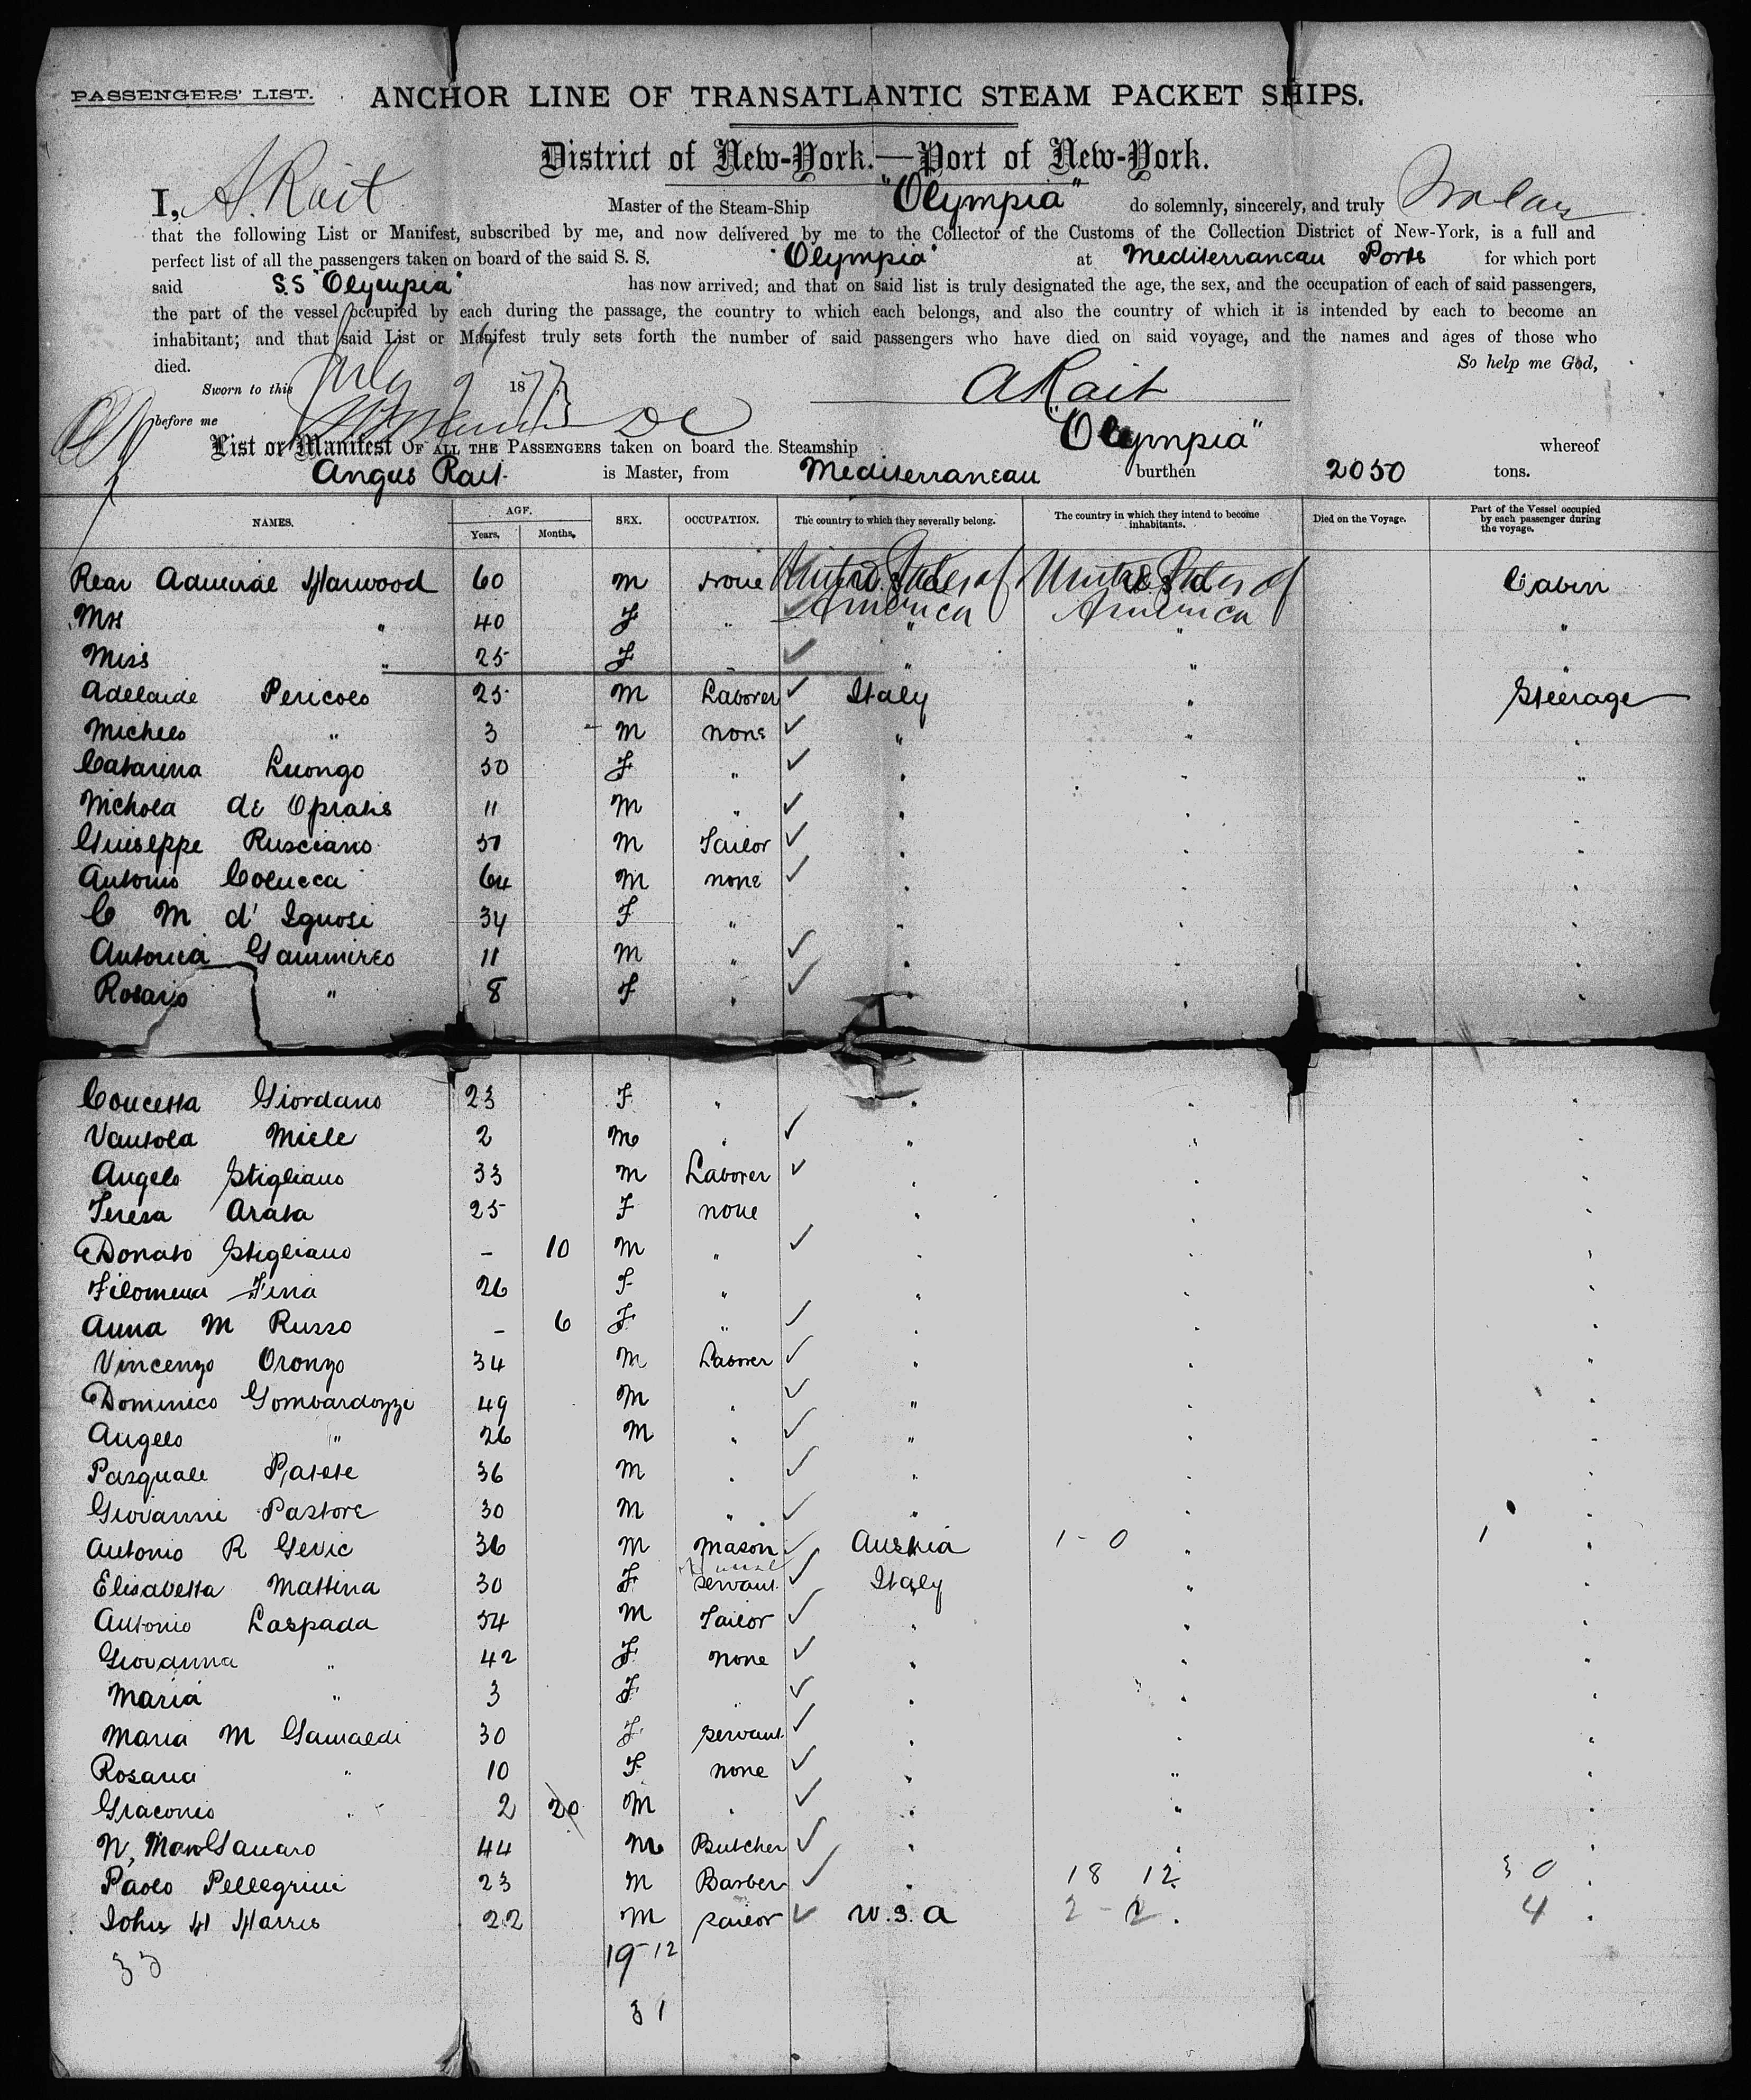 PASSENGERS' LIST. ANCHOR LINE OF TRANSATLANTIC STEAM PACKET SHIPS.
District of New-York.—Port of New-York.
I, A. Rait Master of the Steam-Ship "Olympia" do solemnly, sincerely, and truly
that the following List or Manifest, subscribed by me, and now delivered by me to the Collector of the Customs of the Collection District of New-York, is a full and
perfect list of all the passengers taken on board of the said S. S. "Olympia" at Mediterranean Ports for which port
said S.S "Olympia" has now arrived; and that on said list is truly designated the age, the sex, and the occupation of each of said passengers,
the part of the vessel occupied by each during the passage, the country to which each belongs, and also the country of which it is intended by each to become an
inhabitant; and that said List or Manifest truly sets forth the number of said passengers who have died on said voyage, and the names and ages of those who
died. So help me God,
Sworn to this July 9 1877 A Rait
before me
List or Manifest OF ALL THE PASSENGERS taken on board the Steamship "Olympia" whereof
Angus Rait. is Master, from Mediterranean burthen 2050 tons.
NAMES. AGE. Years. Months. SEX. OCCUPATION. The country to which they severally belong. The country in which they intend to become inhabitants. Died on the Voyage. Part of the Vessel occupied by each passenger during the voyage.
Rear Admiral Harwood 60 M None United States of America United States of America Cabin
Mrs " 40 F " " " "
Miss " 25 F " " " "
Adelaide Pericolo 25 M Laborer Italy " Steerage
Michelo " 3 M none " " "
Catarina Luongo 50 F " " " "
Nichola de Opratis 11 M " " " "
Guiseppe Rusciano 50 M Tailor " " "
Antonio Colucca 64 M none " " "
C M d' Ignosi 34 F " " " "
Antonia Gammireo 11 M " " " "
Rosario " 8 F " " " "
Concetta Giordano 23 F " " " "
Vantola Miele 2 M " " " "
Angelo Stigliano 33 M Laborer " " "
Teresa Arata 25 F none " " "
Donato Stigliano - 10 M " " " "
Filomena Fina 26 F " " " "
Anna M Russo - 6 F " " " "
Vincenzo Oronzo 34 M Laborer " " "
Dominico Gombardozzi 49 M " " " "
Angelo " 26 M " " " "
Pasquale Patete 36 M " " " "
Giovanni Pastore 30 M " " " "
Antonio R Gevic 36 M Mason Austria 1 - 0 " 1 "
Elisabetta Mattina 30 F servant Italy " "
Antonio Laspada 54 M Tailor " " "
Giovanna " 42 F none " " "
Maria " 3 F " " " "
Maria M Gamaldi 30 F servant " " "
Rosaria " 10 F none " " "
Giaconio " 2 20 M " " " "
N, Mon Ganaro 44 M Butcher " " "
Paolo Pellegrini 23 M Barber " 18 12 " 30 "
John H Harris 22 M sailor U.S.A 2 - 2 " 4 "
33 19 12
31